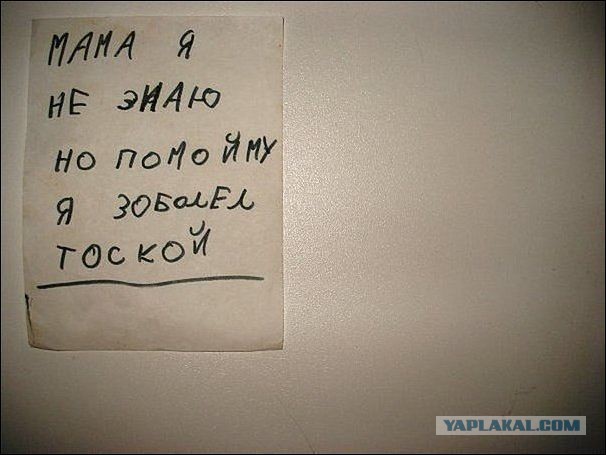 МАМА Я
НЕ ЗНАЮ
НО ПОМОЙМУ
Я ЗОБОЛЕЛ
ТОСКОЙ
YAPLAKAL.COM